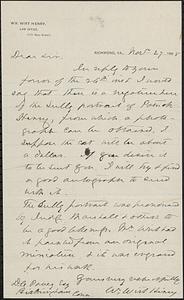 WM. WIRT HENRY,
LAW OFFICE,
RICHMOND, VA., Nov. 27 188
Dear Sir.
In reply to your
favor of the 25th inst I would
say that there is a negative here
of the Sully portrait of Patrick
Henry, from which a photo-
graph can be obtained. I
suppose the cost will be about
a dollar. If you desire it
to be sent you I will try & find
a good autograph to send
with it.
The Sully portrait was pronounced
by Judge Marshall & others to
be a good likeness. Mr Wirt had
it painted from an original
miniature & it was engraved
for his work
Yours very respectfully
Wm Wirt Henry
Esq
Conn